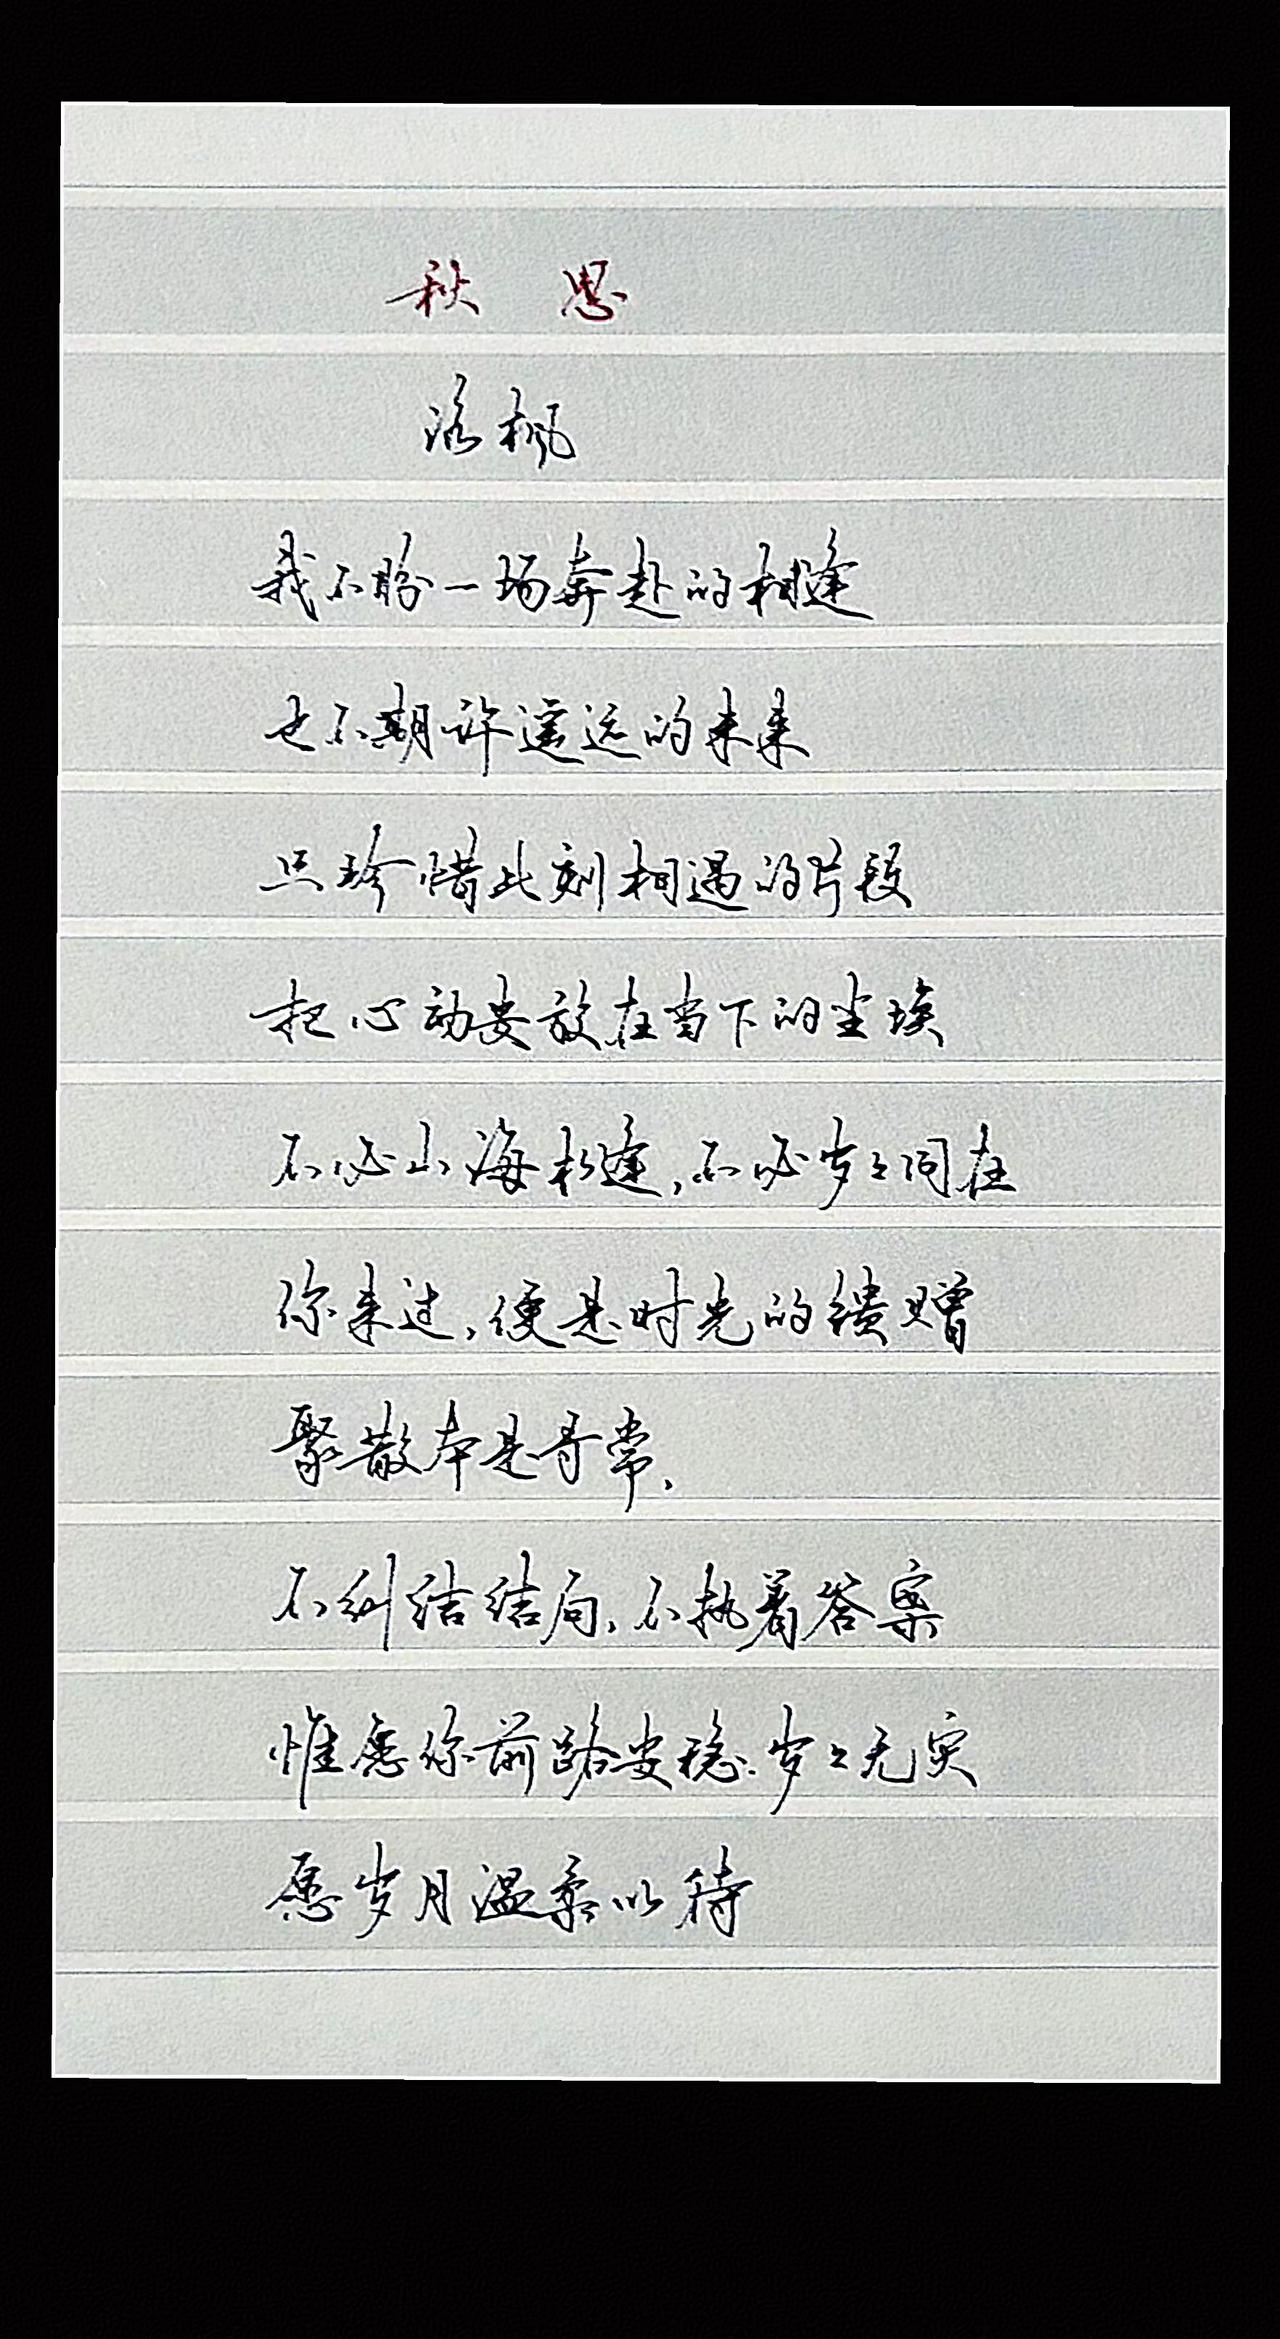 秋 思
洛枫
我不盼一场奔赴的相逢
也不期许遥远的未来
只珍惜此刻相遇的片段
把心动安放在当下的尘埃
不必山海相逢，不必岁岁同在
你来过，便是时光的馈赠
聚散本是寻常，
不纠结结局，不执着答案
惟愿你前路安稳，岁岁无灾
愿岁月温柔以待